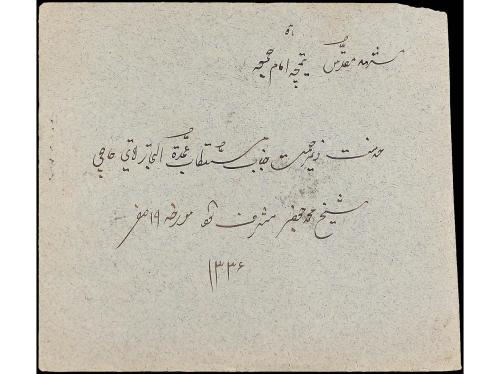 مشهد مقدس تیمچه امام جمعه
خدمت ذیرحمت جناب مستطاب عمدة التجار آقای حاجی
شیخ محمد جعفر مشرف شود مورخه ۱۹ صفر
۱۳۳۶